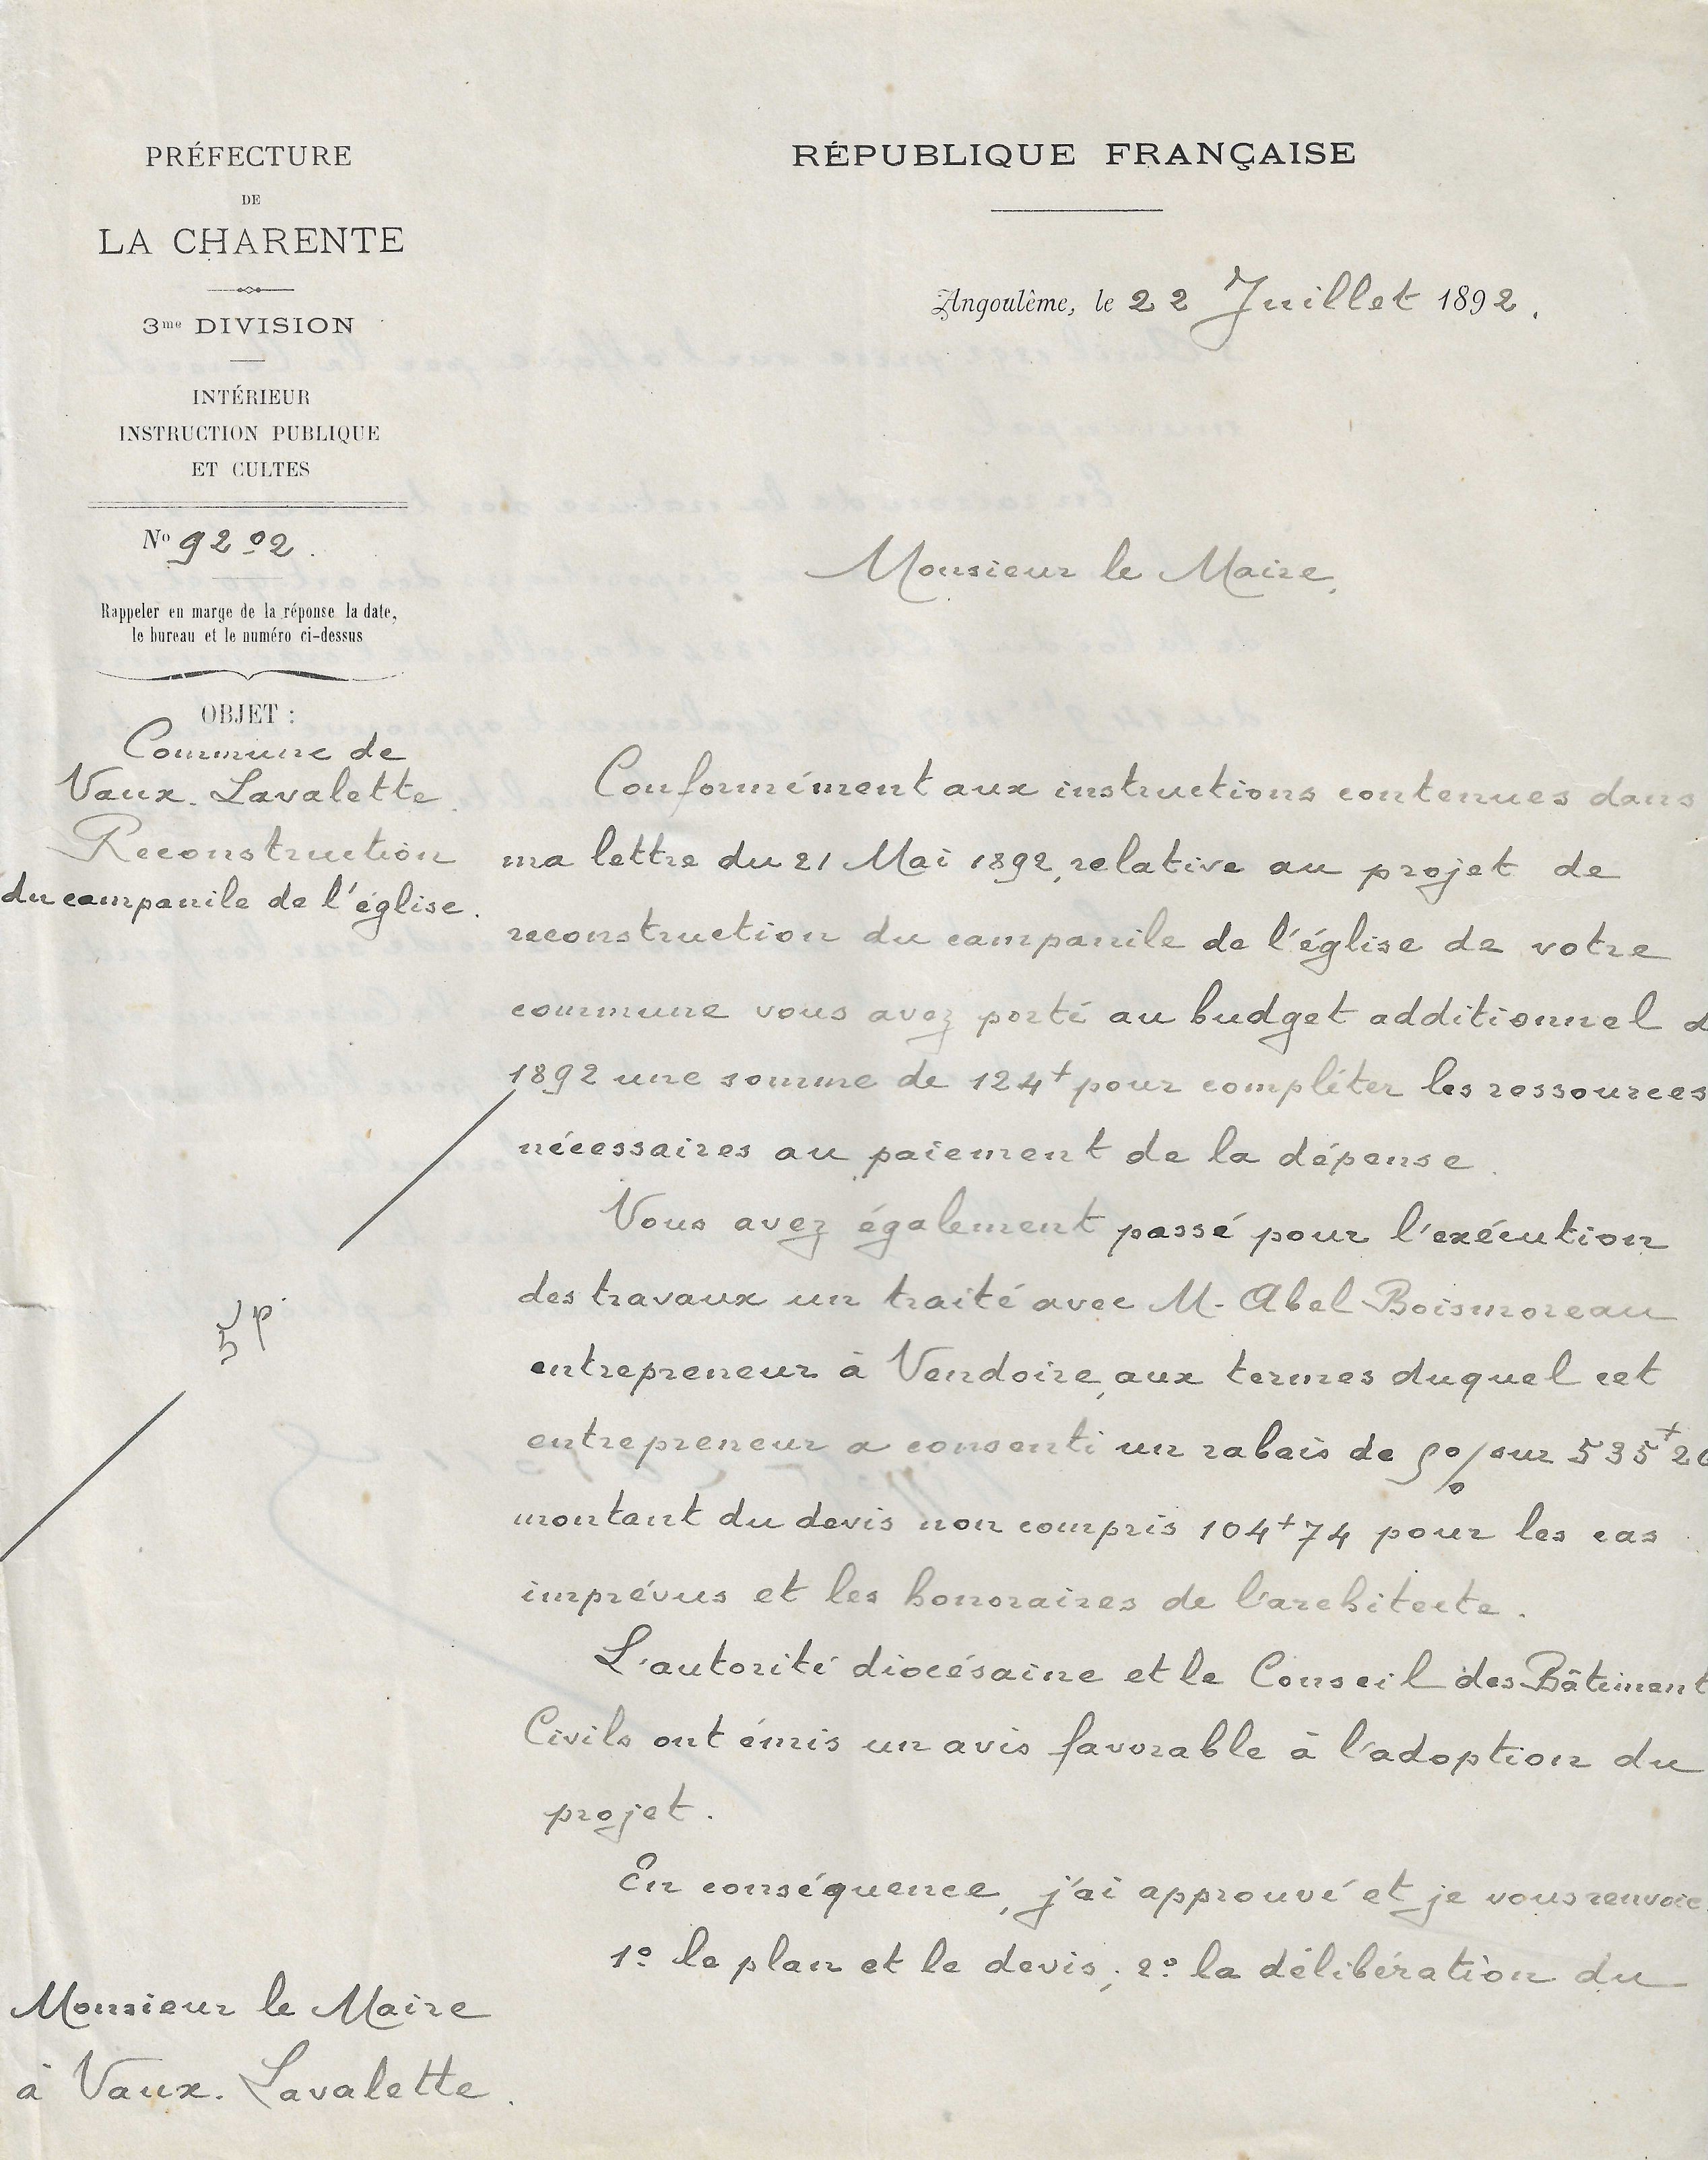 PRÉFECTURE
DE
LA CHARENTE
3me DIVISION
INTÉRIEUR
INSTRUCTION PUBLIQUE
ET CULTES
No 9202.
Rappeler en marge de la réponse la date,
le bureau et le numéro ci-dessus
OBJET :
Commune de
Vaux-Lavalette.
Reconstruction
du campanile de l'église.
5 p.
RÉPUBLIQUE FRANÇAISE
Angoulême, le 22 Juillet 1892.
Monsieur le Maire,
Conformément aux instructions contenues dans
ma lettre du 21 Mai 1892, relative au projet de
reconstruction du campanile de l'église de votre
commune vous avez porté au budget additionnel d
1892 une somme de 124f pour compléter les ressources
nécessaires au paiement de la dépense.
Vous avez également passé pour l'exécution
des travaux un traité avec M. Abel Boismoreau
entrepreneur à Vendoire, aux termes duquel cet
entrepreneur a consenti un rabais de % sur 535f 26
montant du devis non compris 104f74 pour les cas
imprévus et les honoraires de l'architecte.
L'autorité diocésaine et le Conseil des Bâtiment
Civils ont émis un avis favorable à l'adoption du
projet.
En conséquence, j'ai approuvé et je vous renvoie
1o le plan et le devis; 2o la délibération du
Monsieur le Maire
à Vaux-Lavalette.